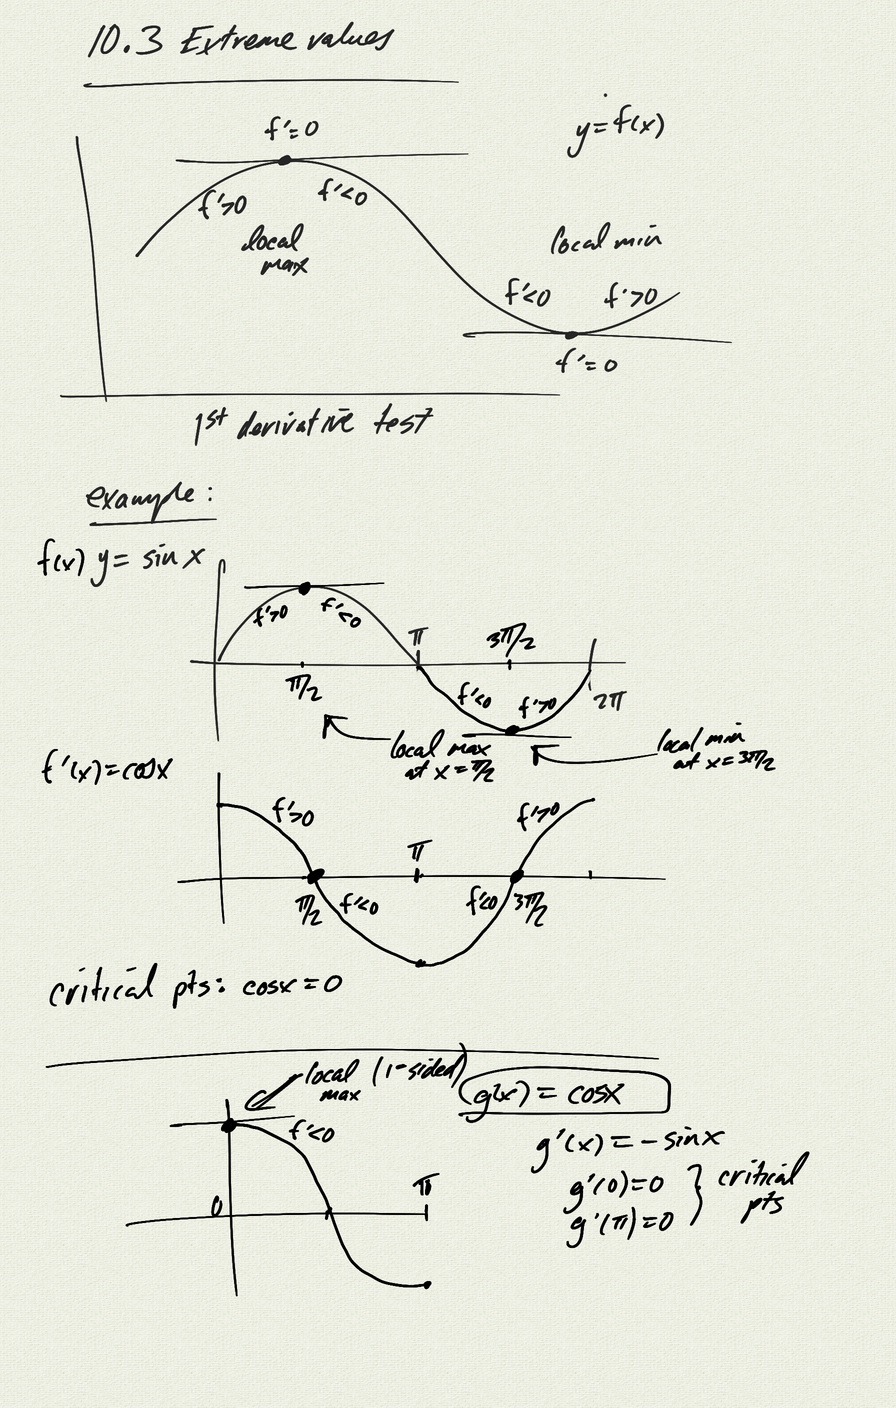 10.3 Extreme values
y=f(x)
f'=0
f'>0
f'<0
local
max
local min
f'<0
f'>0
f'=0
1st derivative test
example:
f(x) y= sin x
f'>0
f'<0
π
3π/2
π/2
f'<0
f'>0
2π
local max
at x=π/2
local min
at x=3π/2
f'(x)=cosx
f'>0
f'>0
π
π/2
f'<0
f'<0
3π/2
critical pts: cosx=0
local (1-sided)
max
g(x) = cosx
f'<0
g'(x)=-sinx
π
g'(0)=0
g'(π)=0
} critical
pts
0